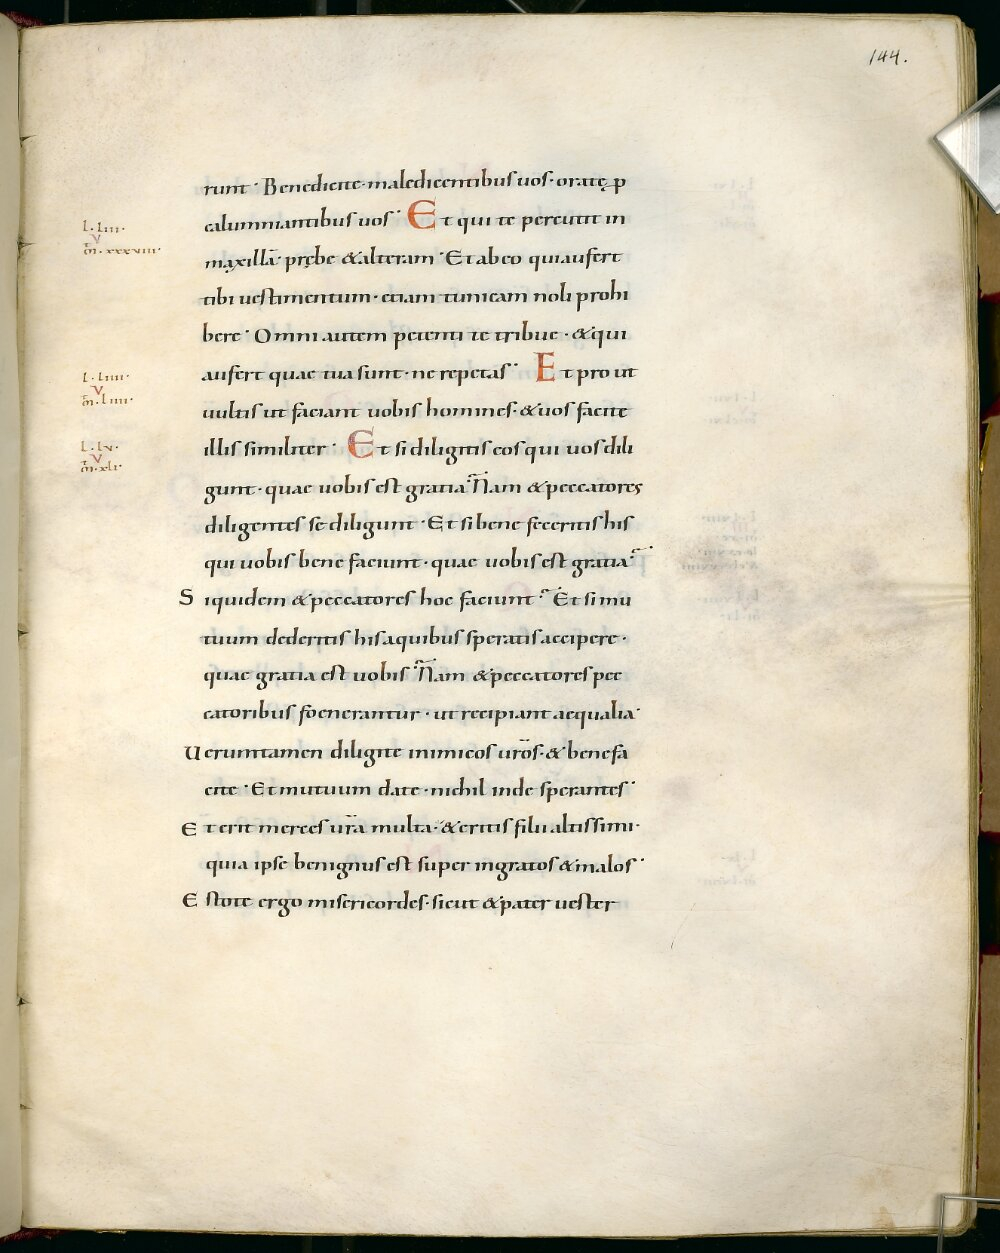 144.
runt · Benedicite · maledicentibus uos · oratę p̱
calumniantibus uos · Et qui te percutit in
l · liii ·
v
m̅ · xxxviii ·
maxillā · prębe & alteram · Et ab eo qui aufert
tibi uestimentum · etiam tunicam noli prohi
bere · Omni autem petenti te tribue · & qui
aufert quae tua sunt · ne repetas · Et pro ut
l · liiii ·
v
m̅ · liiii ·
uultis ut faciant uobis homines · & uos facite
illis similiter · Et si diligitis eos qui uos dili
l · lv ·
v
m̅ · xli ·
gunt · quae uobis est gratia · Nam & peccatores
diligentes se diligunt · Et si bene feceritis his
qui uobis bene faciunt · quae uobis est gratia ·
Siquidem & peccatores hoc faciunt · Et si mu
tuum dederitis his a quibus speratis accipere ·
quae gratia est uobis · Nam & peccatores pec
catoribus foenerantur · ut recipiant aequalia ·
Uerumtamen diligite inimicos ur̅os · & benefa
cite · Et mutuum date · nichil inde sperantes ·
Et erit merces ur̅a multa · & eritis filii altissimi ·
quia ipse benignus est super ingratos & malos ·
Estote ergo misericordes · sicut & pater uester